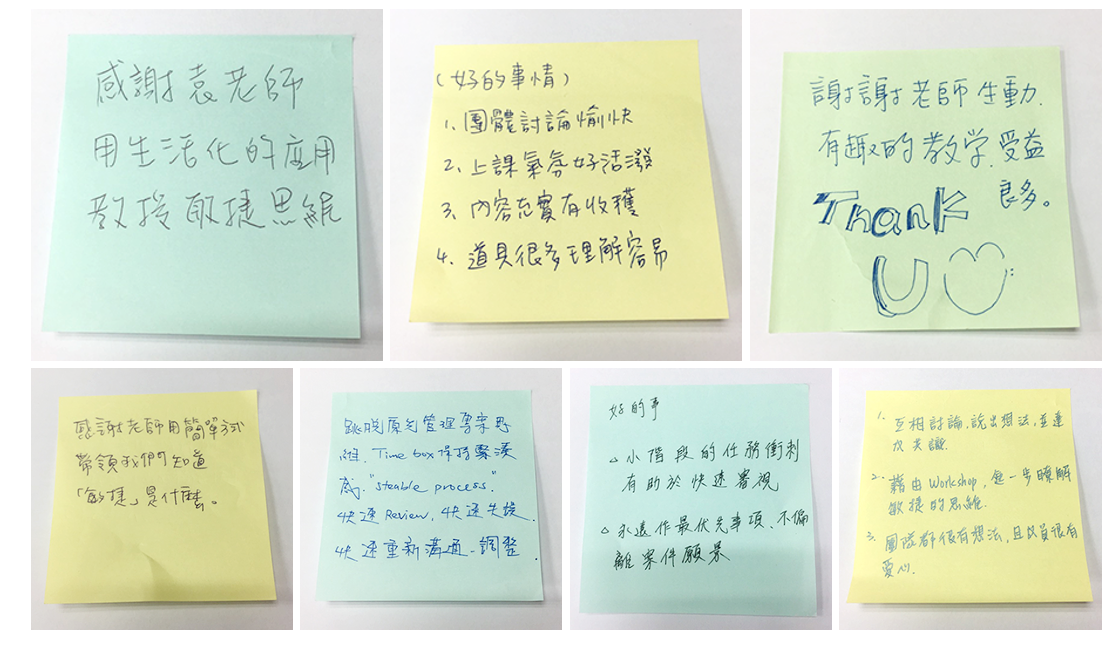 感謝袁老師
用生活化的應用
教授敏捷思維
(好的事情)
1、團體討論愉快
2、上課氣氛好活潑
3、內容充實有收穫
4、道具很多理解容易
謝謝老師生動、
有趣的教学、受益
良多。
Thank
U
感謝老師用簡單方式
帶領我們知道
「敏捷」是什麼。
跳脫原先管理專案思
維、Time box 保持緊湊
感、"steable process."
快速 Review、快速失誤、
快速重新溝通、調整
好的事
△小階段的任務衝刺
有助於快速審視
△永遠作最优先事項、不偏
離案件願景
1、互相討論、說出想法、並達
成共識.
2、藉由 Workshop, 進一步瞭解
敏捷的思維.
3、團隊都很有想法, 且成員很有
愛心.